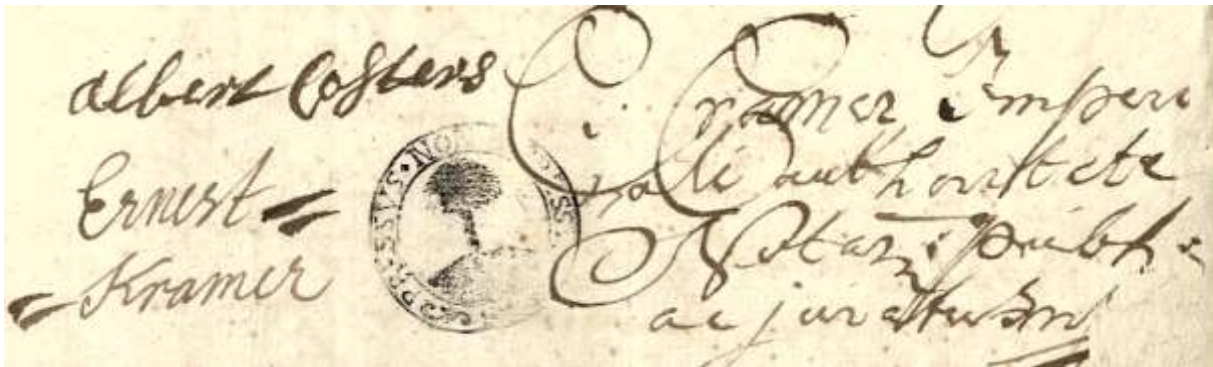 albert Costers
Ernest =
= Kramer
PRESSVS · NON
C. Cramer Imperi
ali authoritate
Notari Publi
ac juratus